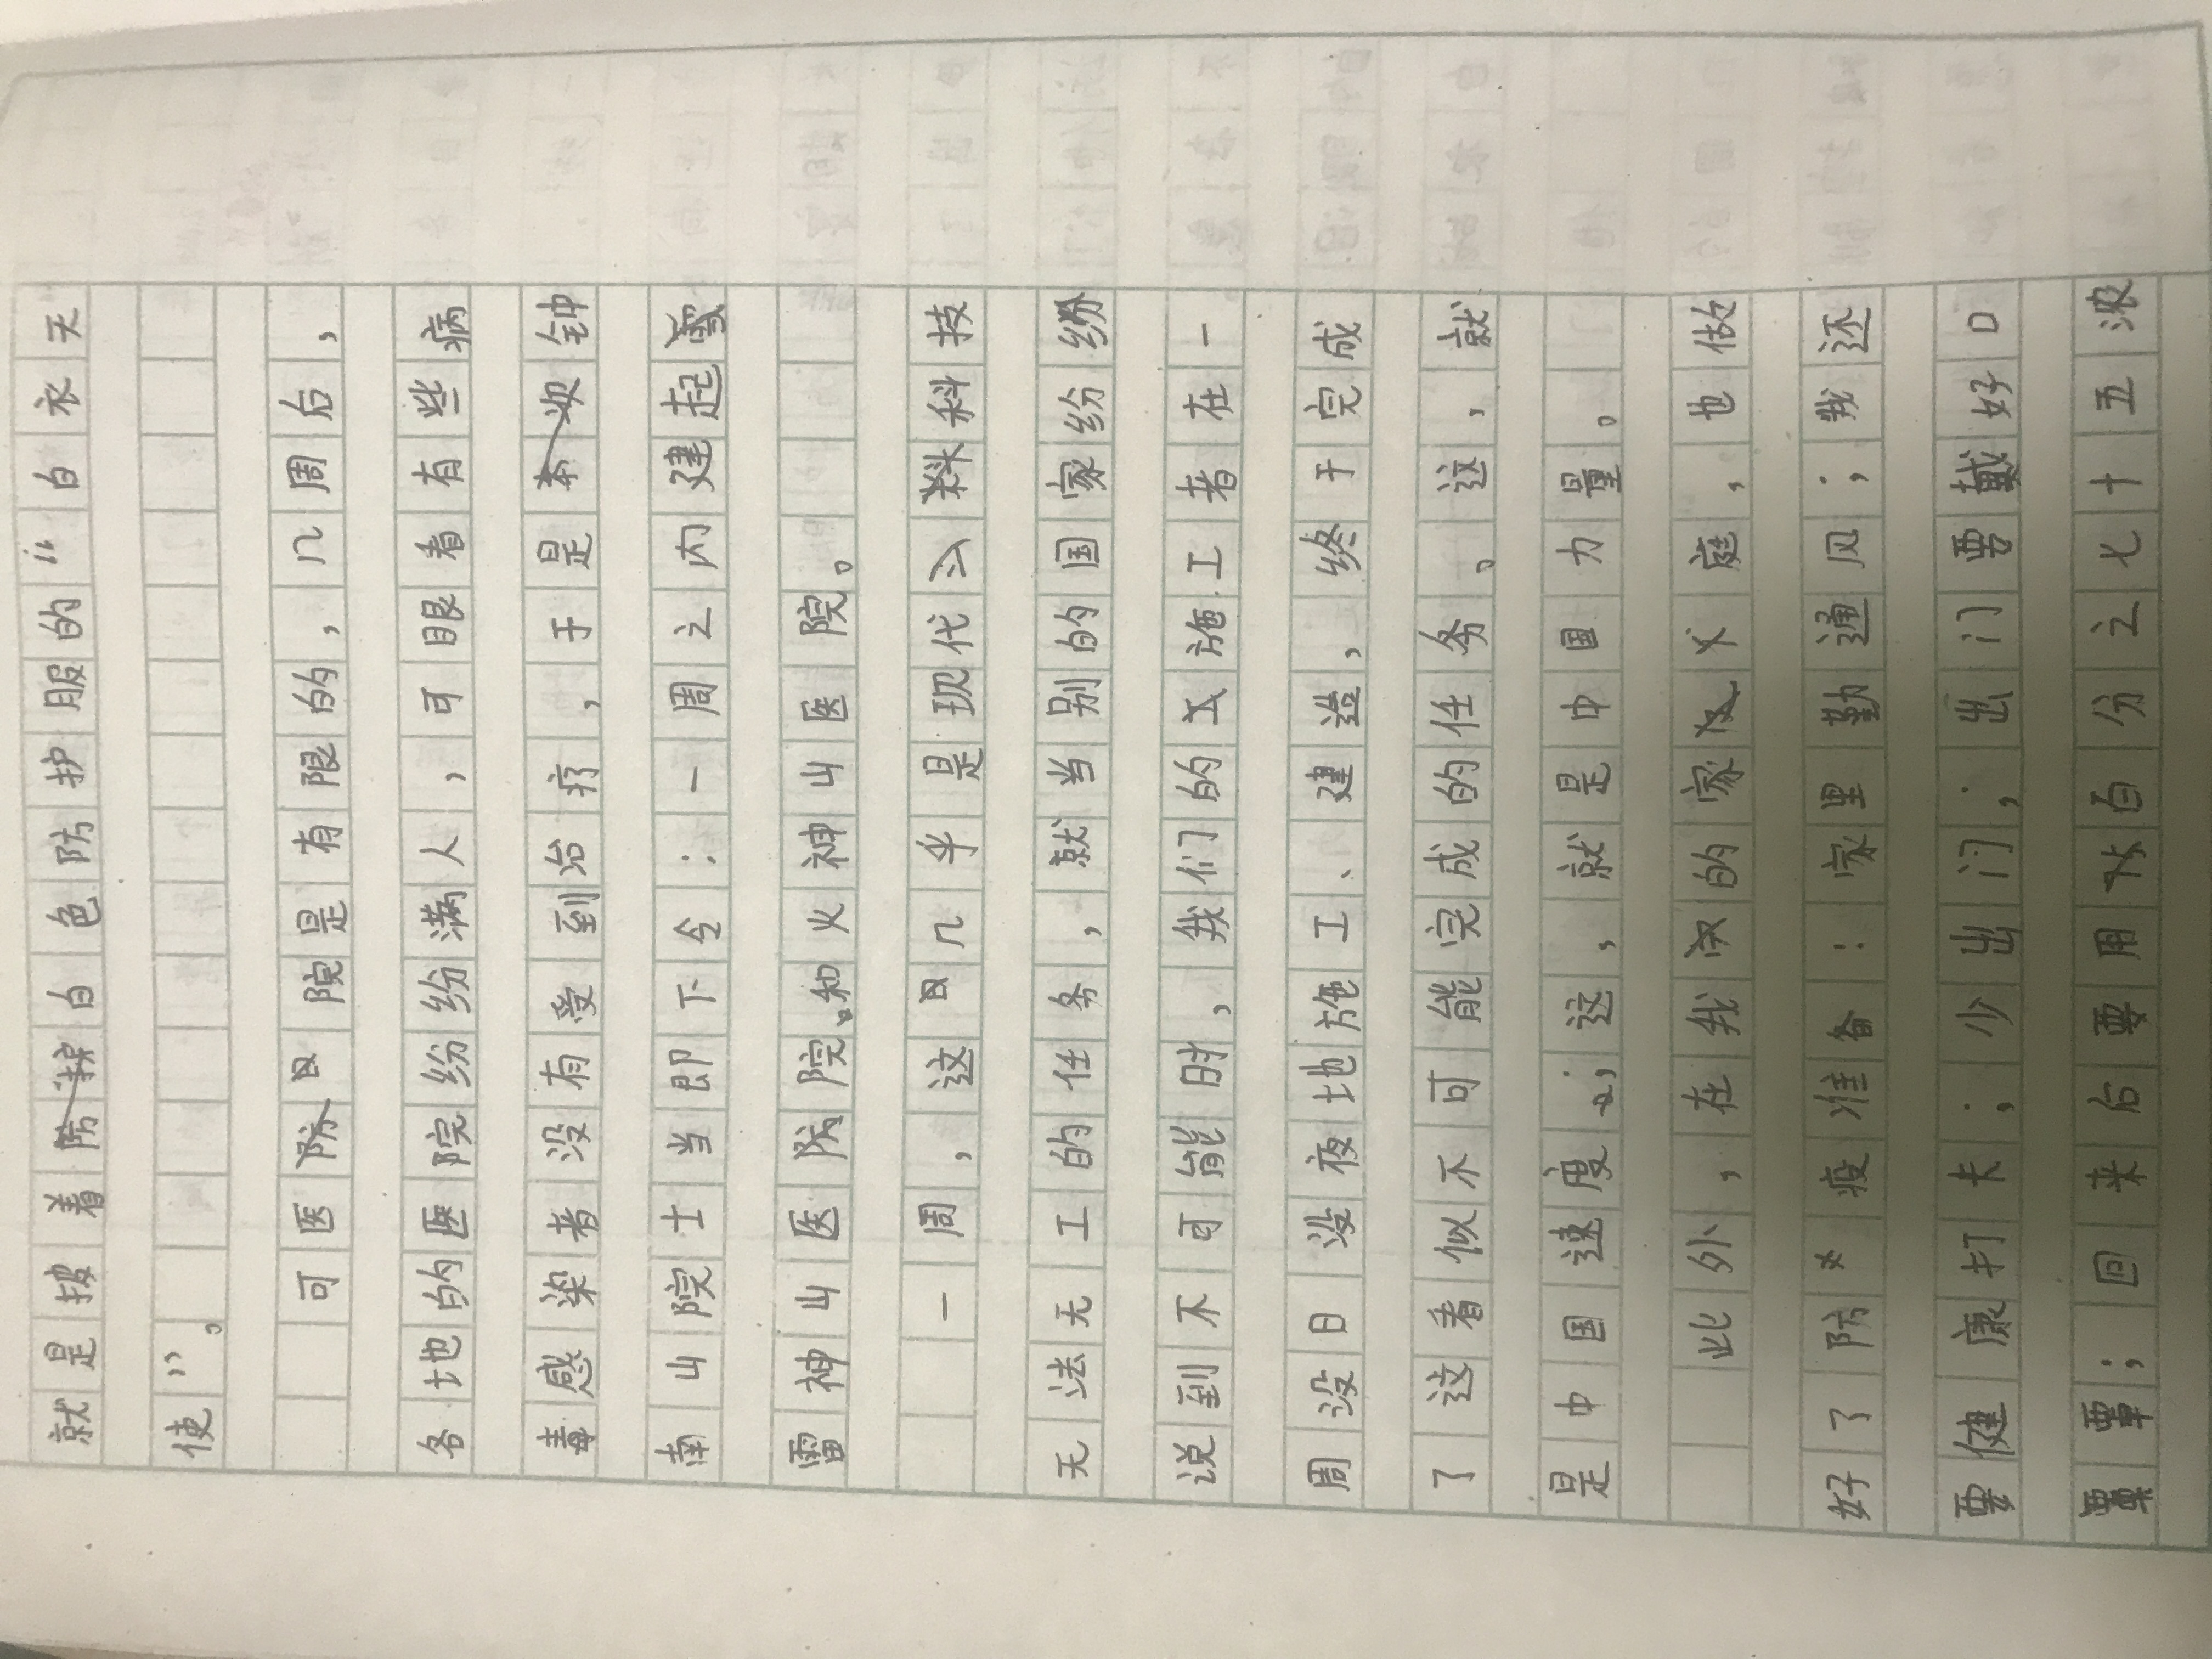 就是披着白色防护服的“白衣天
使”。
可医院是有限的，几周后，
各地的医院纷纷满人，可眼看有些病
毒感染者没有受到冶疗，于是钟
南山院士当即下令：一周之内建起
雷神山医院和火神山医院。
一周，这几乎是现代科技
无法无工的任务，就当别的国家纷纷
说到不可能时，我们的施工者在一
周没日没夜地施工、建造，终于完成
了这看似不可能完成的任务。这，就
是中国速度；这，就是中国力量。
此外，在我的家庭，也做
好了防疫准备：家里勤通风；我还
要健康打卡；少出门；出门要戴好口
罩；回来后要用百分之七十五浓